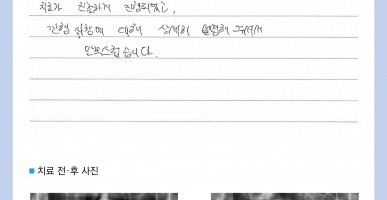 치료가 친절하게 진행되었고,
진행 상황에 대해 상세히 설명해 주셔서
만족스럽습니다.
치료 전·후 사진